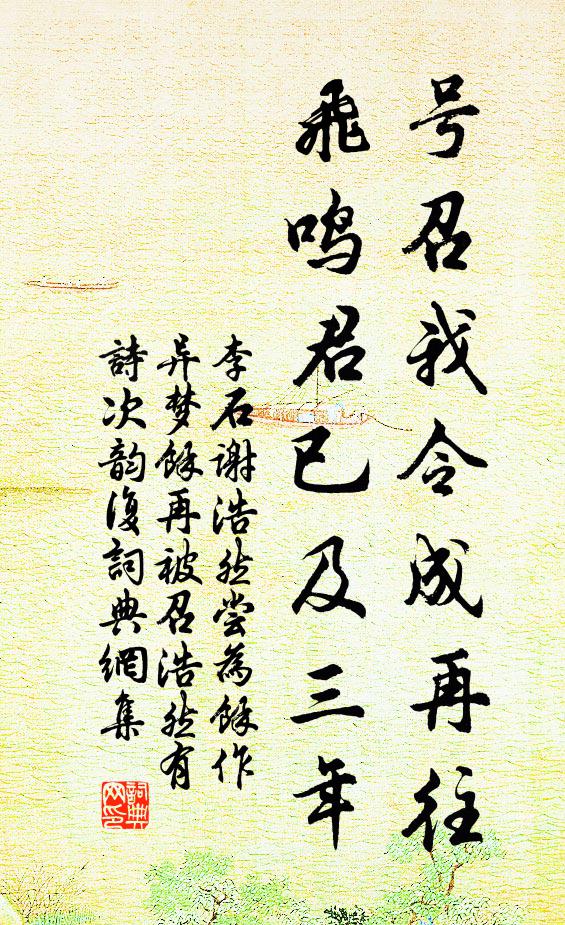 号召我令成再往
飛鸣君已及三年
李石谢浩然尝為餘作
异梦餘再被召浩然有
詩次韵復詞典網集
詞典
网印